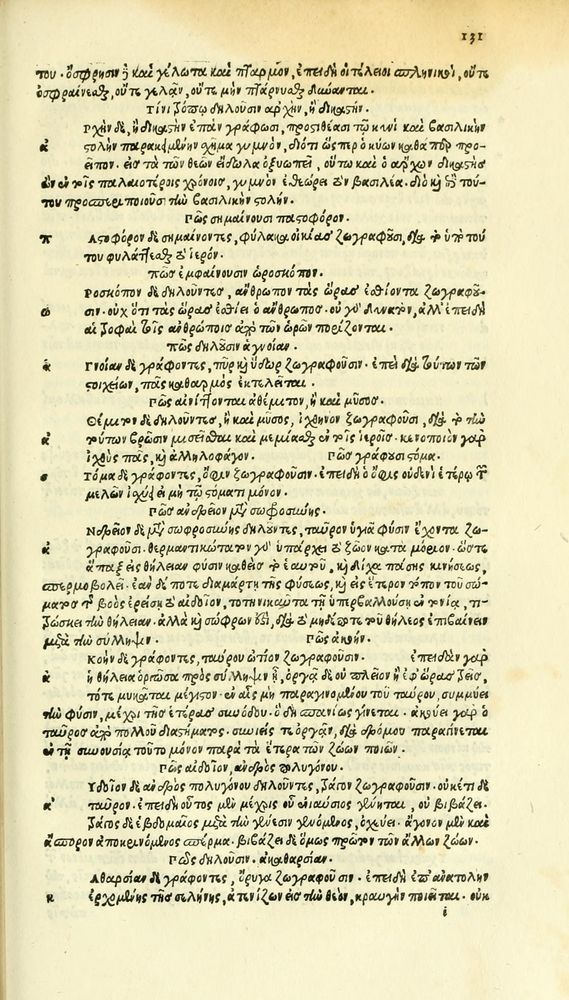 131
του. ὄσφρησιν ἢ καὶ γέλωτα καὶ πταρμὸν, ἐπειδὴ οἱ τέλειοι σπληνικοὶ, οὔτε
ὀσφραίνεσθαι, οὔτε γελᾶν, οὔτε μὴν πτάρνυσθαι δύνανται.
Τίνι τόπῳ δηλοῦσιν ἀρχὴν, ἢ δικαστήν.
Ρχὴν δὲ, ἢ δικαστὴν ἐπὰν γράφωσι, προστιθέασι τῷ κυνὶ καὶ βασιλικὴν
ἀ στολὴν παρακειμένην σχῆμα γυμνὸν, διότι ὥσπερ ὁ κύων καθαπὲρ προ-
εῖπον. εἰς τὰ τῶν θεῶν εἴδωλα ὀξυωπεῖ, οὕτω καὶ ὁ ἄρχων δικαστὴς
ὢν ἐν τοῖς παλαιοτέροις χρόνοις, γυμνὸν ἐθεώρει τὸν βασιλέα. διὸ καὶ ἐπὶ τού-
του προσπεριποιοῦσι τὴν βασιλικὴν στολήν.
Πῶς σημαίνουσι παστοφόρον.
π Αστοφόρον δὲ σημαίνοντες, φύλακα οἰκίας ζωγραφοῦσι, διὰ τὸ ὑπὸ τού
του φυλάττεσθαι τὸ ἱερόν.
πῶς ἐμφαίνουσιν ὡροσκόπον.
Ροσκόπον δὲ δηλοῦντες, ἄνθρωπον τὰς ὥρας ἐσθίοντα ζωγραφοῦ-
ω σιν. οὐχ ὅτι τὰς ὥρας ἐσθίει ὁ ἄνθρωπος. οὐ γὰρ δυνατὸν, ἀλλ' ἐπειδὴ
αἱ τροφαὶ τοῖς ἀνθρώποις ἀπὸ τῶν ὡρῶν πορίζονται.
πῶς δηλοῦσιν ἁγνείαν.
ἁ Γνοίαν δὲ γράφοντες, πῦρ καὶ ὕδωρ ζωγραφοῦσιν. ἐπεὶ διὰ τούτων τῶν
στοιχείων, πᾶς καθαρμὸς ἐκτελεῖται.
Πῶς αἰνίττονται ἀθέμιτον, ἢ καὶ μῦσος.
Θέμιτον δὲ δηλοῦντες, ἢ καὶ μῦσος, ἰχθὺν ζωγραφοῦσι, διὰ τὸ τὴν
ἀ τούτων βρῶσιν μισεῖσθαι καὶ μεμιάνθαι ἐν τοῖς ἱεροῖς. κενοποιὸν γὰρ
ἰχθὺς πᾶς, καὶ ἀλληλοφάγον. Πῶς γράφουσι στόμα.
σ Τόμα δὲ γράφοντες, ὄφιν ζωγραφοῦσιν. ἐπειδὴ ὁ ὄφις οὐδενὶ ἑτέρῳ τῶν
μελῶν ἰσχύει μὴ τῷ στόματι μόνον.
Πῶς ἀνδρεῖον μετὰ σωφροσύνης.
Νδρεῖον δὲ μετὰ σωφροσύνης δηλοῦντες, ταῦρον ὑγιᾶ φύσιν ἔχοντα ζω-
ἀ γραφοῦσι. θερμαντικώτατον γὰρ ὑπάρχει τὸ ζῶον κατὰ μόριον. ὥστε
ἅπαξ εἰς θήλειαν φύσιν καθεὶς τὸ ἑαυτοῦ, καὶ δίχα πάσης κινήσεως,
σπερμοβολεῖ. ἐὰν δέ ποτε διαμάρτῃ τῆς φύσεως, καὶ εἰς ἕτερον τόπον τοῦ σώ-
ματος τῆς βοὸς ἐρείσῃ τὸ αἰδοῖον, τοτηνικαῦτα τῇ ὑπερβαλλούσῃ εὐτονίᾳ, τι-
τρώσκει τὴν θήλειαν. ἀλλὰ καὶ σώφρων ἐστὶ, διὰ τὸ μηδέποτε τοῦ θήλεος ἐπιβαίνειν
μετὰ τὴν σύλληψιν. Πῶς ἀκοήν.
Κοὴν δὲ γράφοντες, ταύρου ὠτίον ζωγραφοῦσιν. ἐπειδὰν γὰρ
ἀ ἡ θήλεια ὀργῶσα πρὸς σύλληψιν ᾖ, ὀργᾷ δὲ οὐ πλεῖον ἢ ἐφ' ὥρας τρεῖς,
τότε μυκᾶται μέγιστον. ἐν αἷς μὴ παραγινομένου τοῦ ταύρου, συμμύει
τὴν φύσιν, μέχρι τῆς ἑτέρας συνόδου. ὃ δὴ σπανίως γίνεται. ἀκούει γὰρ ὁ
ταῦρος ἀπὸ πολλοῦ διαστήματος. συνιεὶς τε ὀργᾶν, διὰ δρόμου παραγίνεται
ἐν τῇ συνουσίᾳ τοῦτο μόνον παρὰ τὰ ἕτερα τῶν ζώων ποιῶν.
Πῶς αἰδοῖον, ἀνδρὸς πολυγόνου.
Υδοῖον δὲ ἀνδρὸς πολυγόνου δηλοῦντες, τράγον ζωγραφοῦσιν. οὐκέτι δὲ
ἀ ταῦρον. ἐπειδὴ οὗτος μὲν μέχρις οὗ ἐνιαύσιος γένηται, οὐ βιβάζει.
τράγος δὲ ἑβδομαῖος μετὰ τὴν γένεσιν γενόμενος, ὀχεύει. ἄγονον μὲν καὶ
ἄσπορον ἀποκρινόμενος σπέρμα. βιβάζει δὲ ὅμως πρῶτον τῶν ἄλλων ζώων.
Πῶς δηλοῦσιν. ἀκαθαρσίαν.
Αθαρσίαν δὲ γράφοντες, ὄρυγα ζωγραφοῦσιν. ἐπειδὴ ἐπ' ἀνατολὴν
κ ἐρχομένης τῆς σελήνης, ἀτενίζων εἰς τὴν θεὸν, κραυγὴν ποιεῖται. οὐκ
i